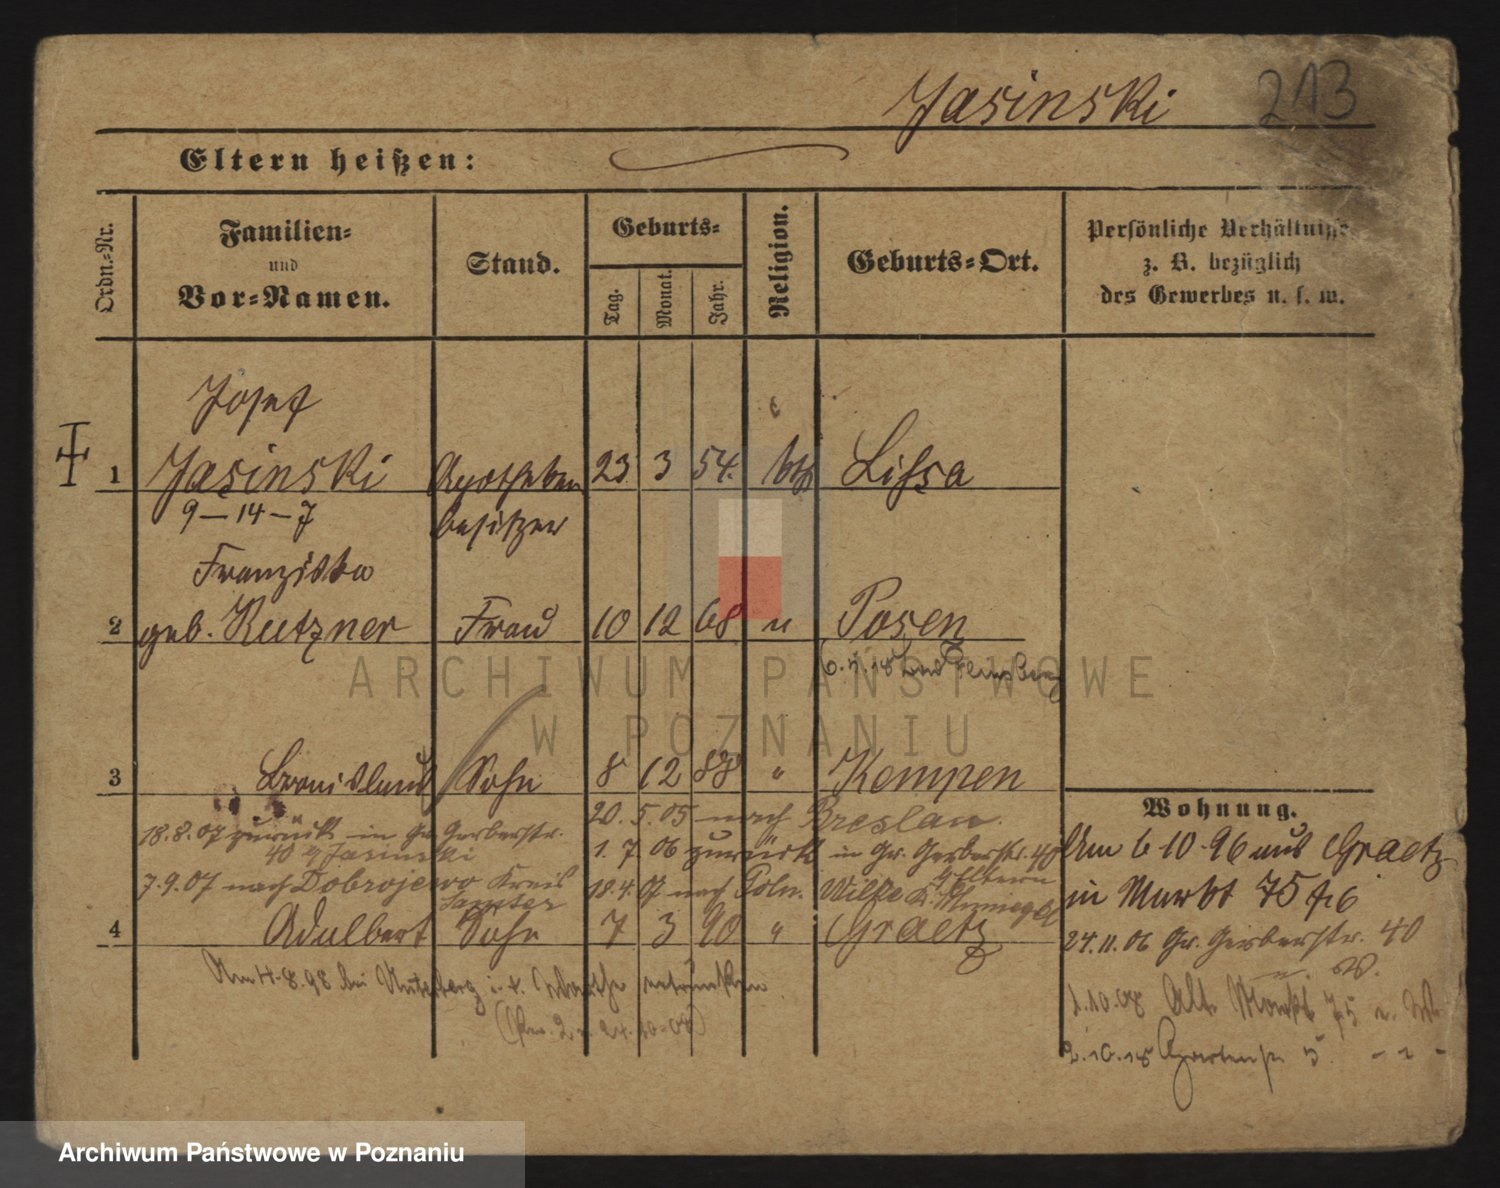 Jasinski 213
Eltern heißen:
Ordn.-Nr.
Familien-
und
Vor-Namen.
Stand.
Geburts-
Tag.
Monat.
Jahr.
Religion.
Geburts-Ort.
Persönliche Verhältnisse
z. B. bezüglich
des Gewerbes u. s. w.
Josef
1 Jasinski Apotheken 23 3 54. kth Lissa
9-14-7 besitzer
Franziska
2 geb. Rutzner Frau 10 12 68 " Posen
ARCHIWUM PAŃSTWOWE
W POZNANIU
3 Bronislaus Sohn 8 12 88 " Kempen
20. 5. 05 nach Breslau.
18.8.07 zurück in Gr. Gerberstr.
40 Jasinski
1. 7. 06 zurück in Gr. Gerberstr. 40
7.9.07 nach Dobrojewo Kreis
Samter
18.4.07 nach Poln. Wilke
4 Adalbert Sohn 7 3 90 " Graetz
Am 4.8.98 bei i. d. Warthe ertrunken
Wohnung.
Am 6 10 96 aus Graetz
in Markt 75
24.11.06 Gr. Gerberstr. 40
u. W.
1.10.08 Alt. Markt 75 u. W.
2.10.15 Gartenstr. 5 - " -
Archiwum Państwowe w Poznaniu